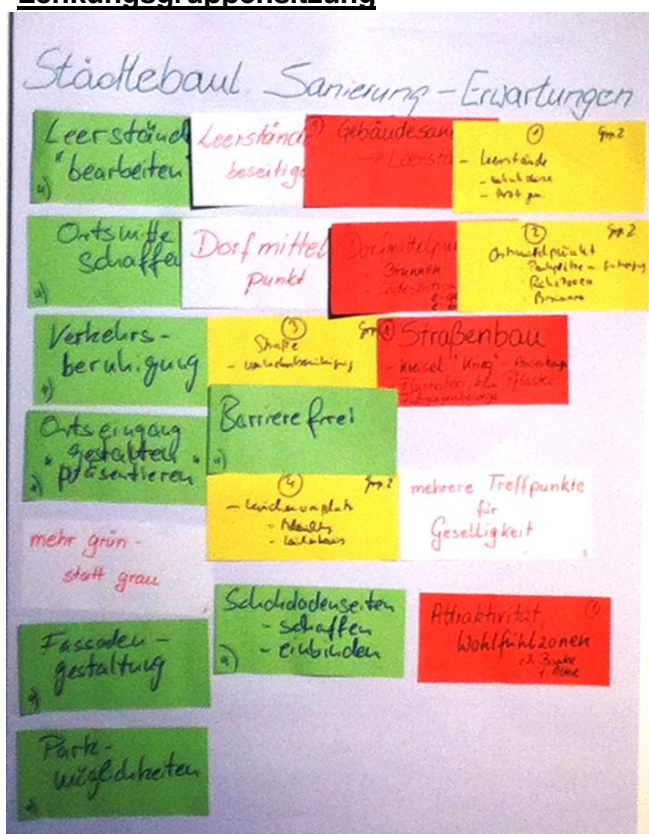 Lenkungsgruppensitzung
Städtebaul. Sanierung - Erwartungen
Leerständ
"bearbeiten"
Leerständ
beseitige
Gebäudesan
→ Leersta
① Grp. 2
- Leerstände
Ortsmitte
schaffen
Dorfmittel
punkt
Dorfmittelpun
- Brunnen
② Grp. 2
Ortsmittelpunkt
- Ruhezonen
- Brunnen
Verkehrs-
beruhigung
③
Straße
- Verkehrsberuhigung
Straßenbau
- Kreisel "Krieg"
Ortseingang
"gestalten"
präsentieren"
Barriere frei
④ Grp. 2
mehrere Treffpunkte
für
Geselligkeit
mehr grün -
statt grau
Schokoladenseiten
- schaffen
- einbinden
Attraktivität,
Wohlfühlzonen
z.B. Bänke
f. Alte
Fassaden -
gestaltung
Park-
möglichkeiten